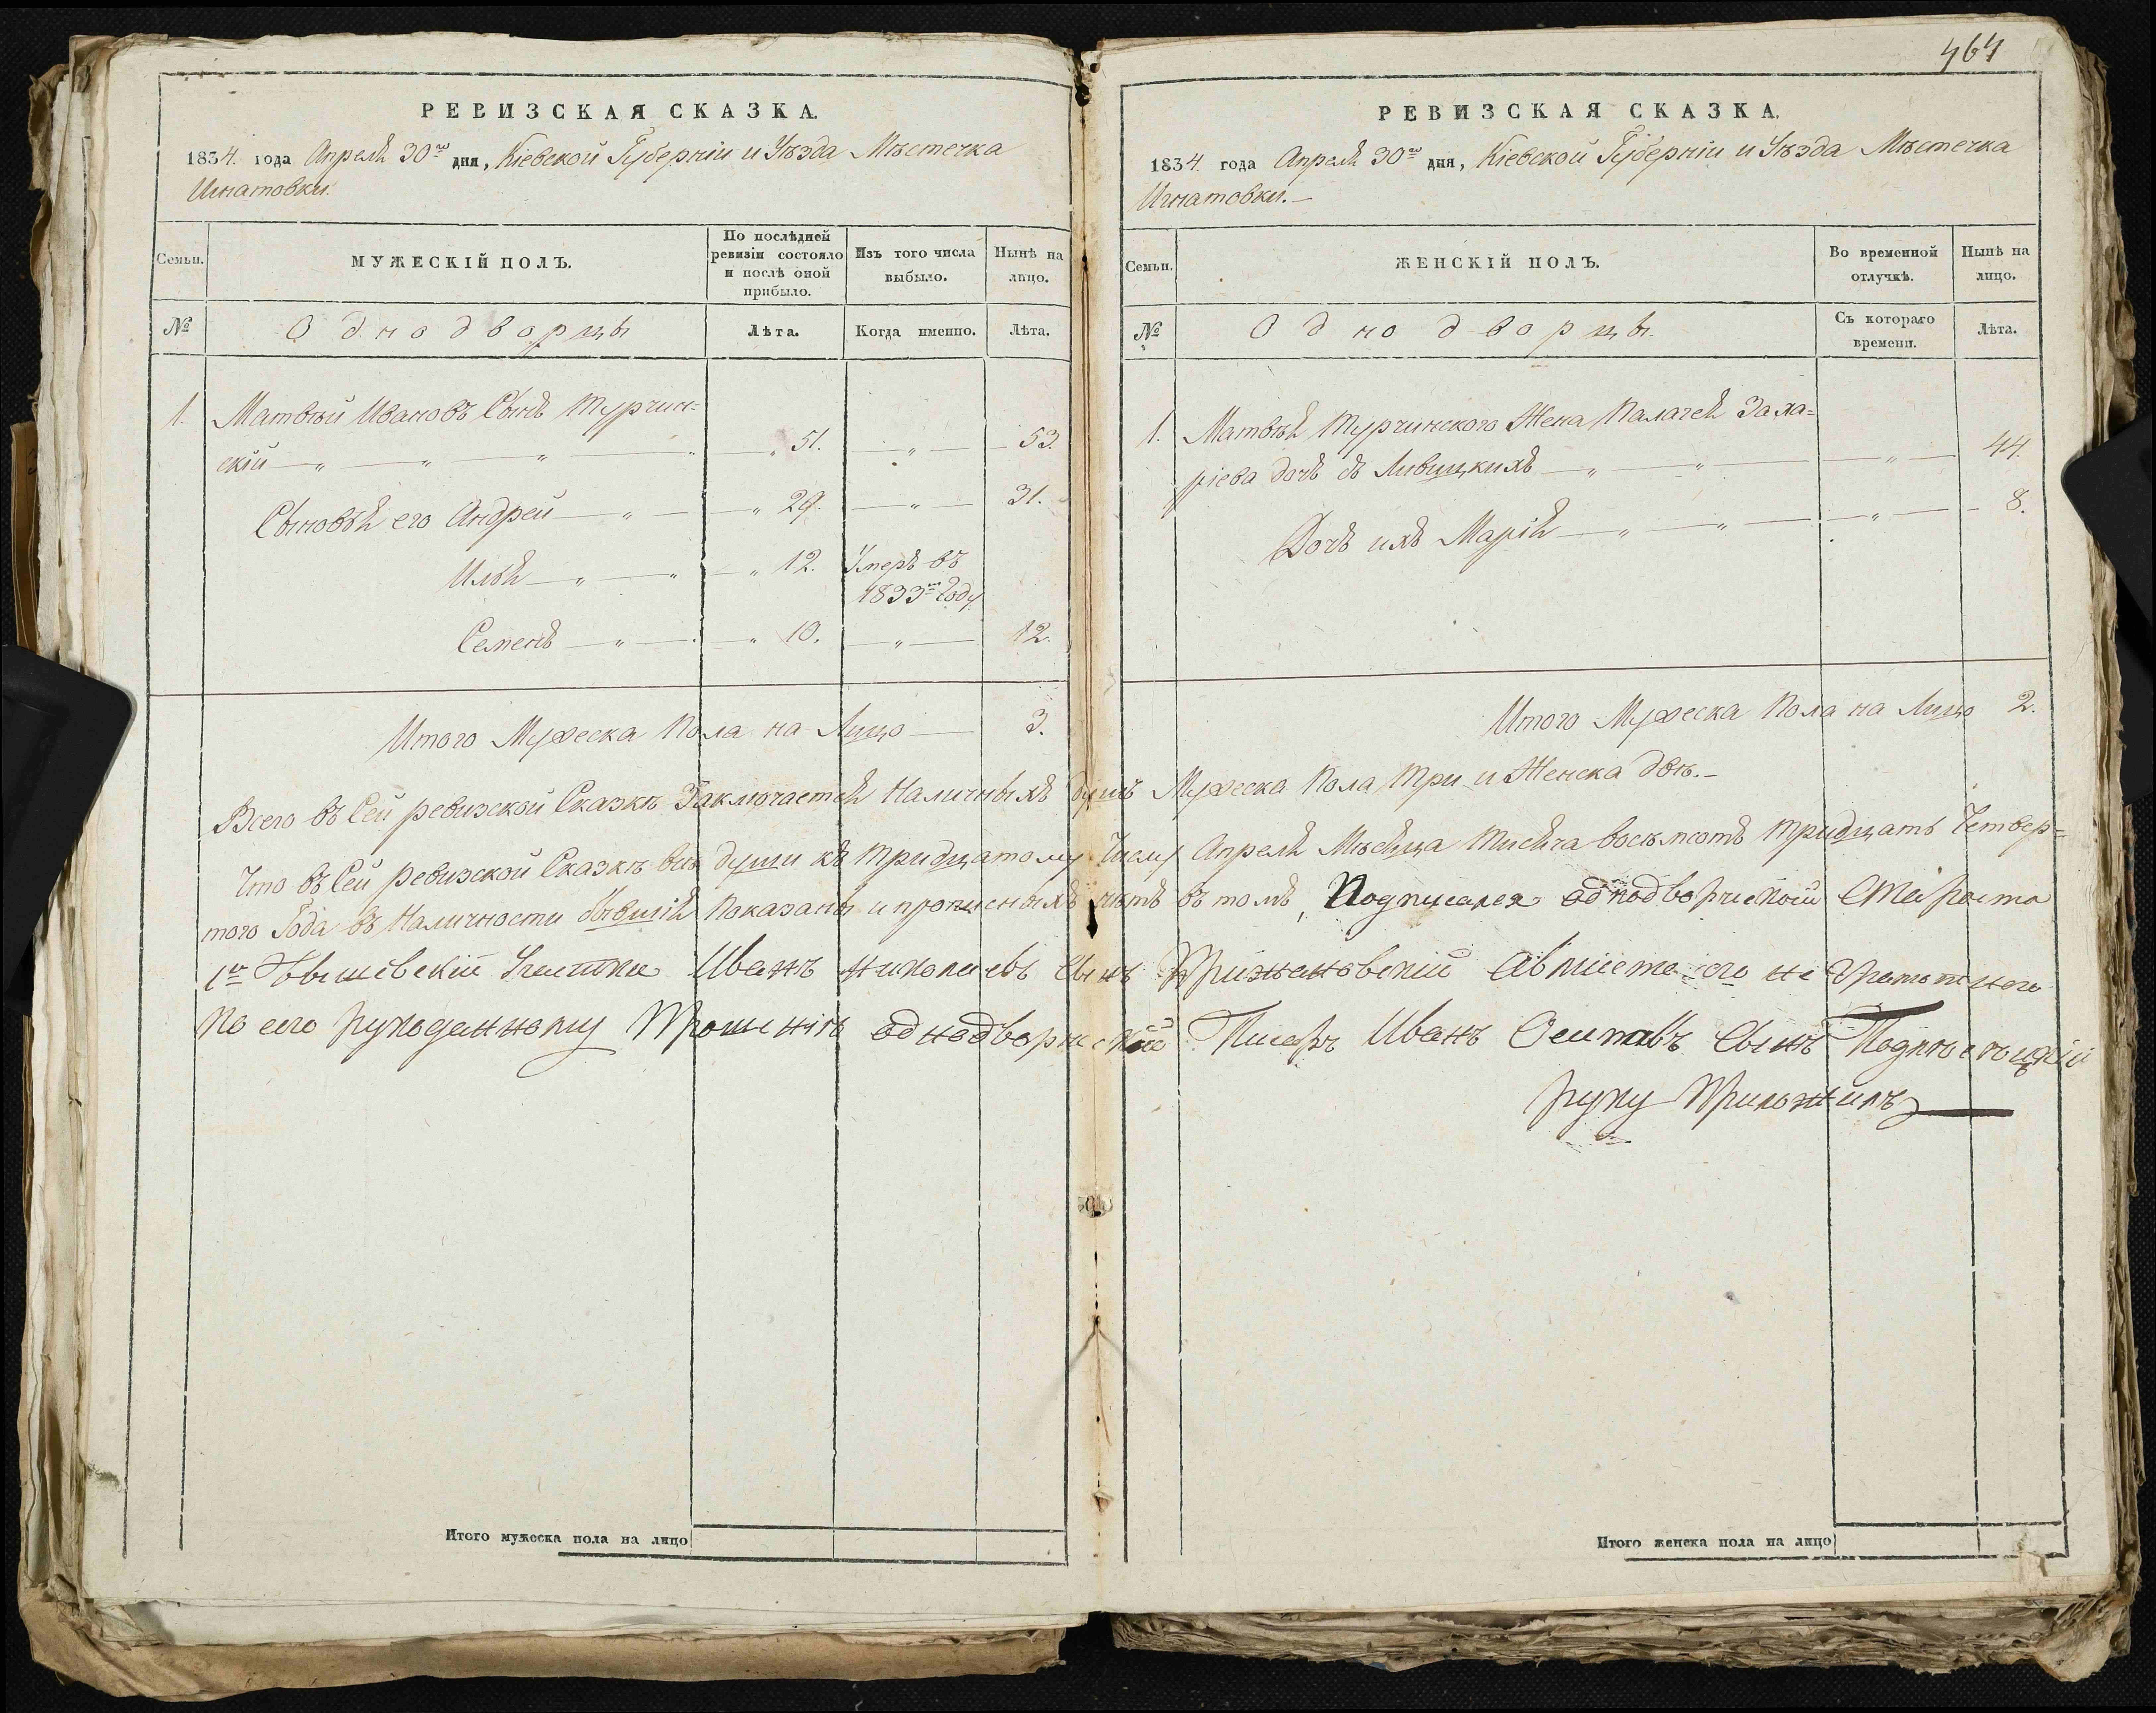 РЕВИЗСКАЯ СКАЗКА.
1834. года Апреля 30го дня, Кіевской Губерніи и Уѣзда Мѣстечка
Игнатовки.
Семьи.
МУЖЕСКІЙ ПОЛЪ.
По послѣдней ревизіи состояло и послѣ оной прибыло.
Изъ того числа выбыло.
Нынѣ на лицо.
№
Однодворцы
Лѣта.
Когда именно.
Лѣта.
1. Матвѣй Ивановъ Сынъ Турчин=
скій — „ — „ — „ — „ 51. — „ — 53.
Сыновья его Андрей — „ — „ 29. — „ — 31.
Илья — „ — „ — „ 12. Умеръ въ
1833мъ Году
Семенъ — „ — „ 10. — „ — 12.
Итого Мужеска Пола на Лицо — 3.
464
РЕВИЗСКАЯ СКАЗКА.
1834. года Апреля 30го дня, Кіевской Губерніи и Уѣзда Мѣстечка
Игнатовки. —
Семьи.
ЖЕНСКІЙ ПОЛЪ.
Во временной отлучкѣ.
Нынѣ на лицо.
№
Однодворцы.
Съ котораго времени.
Лѣта.
1. Матвѣя Турчинского Жена Палагея Заха=
ріева дочь съ Ливицкихъ — „ — „ — „ — 44.
Дочь ихъ Марія — „ — „ — „ — 8.
Итого Мужеска Пола на Лицо 2.
Всего въ Сей ревизской Сказкѣ Заключается Наличныхъ душъ Мужеска Пола Три и Женска двѣ. —
Что въ Сей ревизской Сказкѣ всѣ души къ тридцатому Числу Апреля Мѣсяца Тисяча восемсотъ тридцать Четвер=
того Года въ Наличности бывшія показаны и прописныхъ нѣтъ въ томъ, Подписался однодворческой Староста
1го Участка Иванъ Николаевъ Сынъ Крижановскій Авмѣсто его не Грамотного
по его рукоданному Прошенію однодворческой Писарь Иванъ Осиповъ Сынъ
руку Приложилъ
Итого мужеска пола на лицо
Итого женска пола на лицо